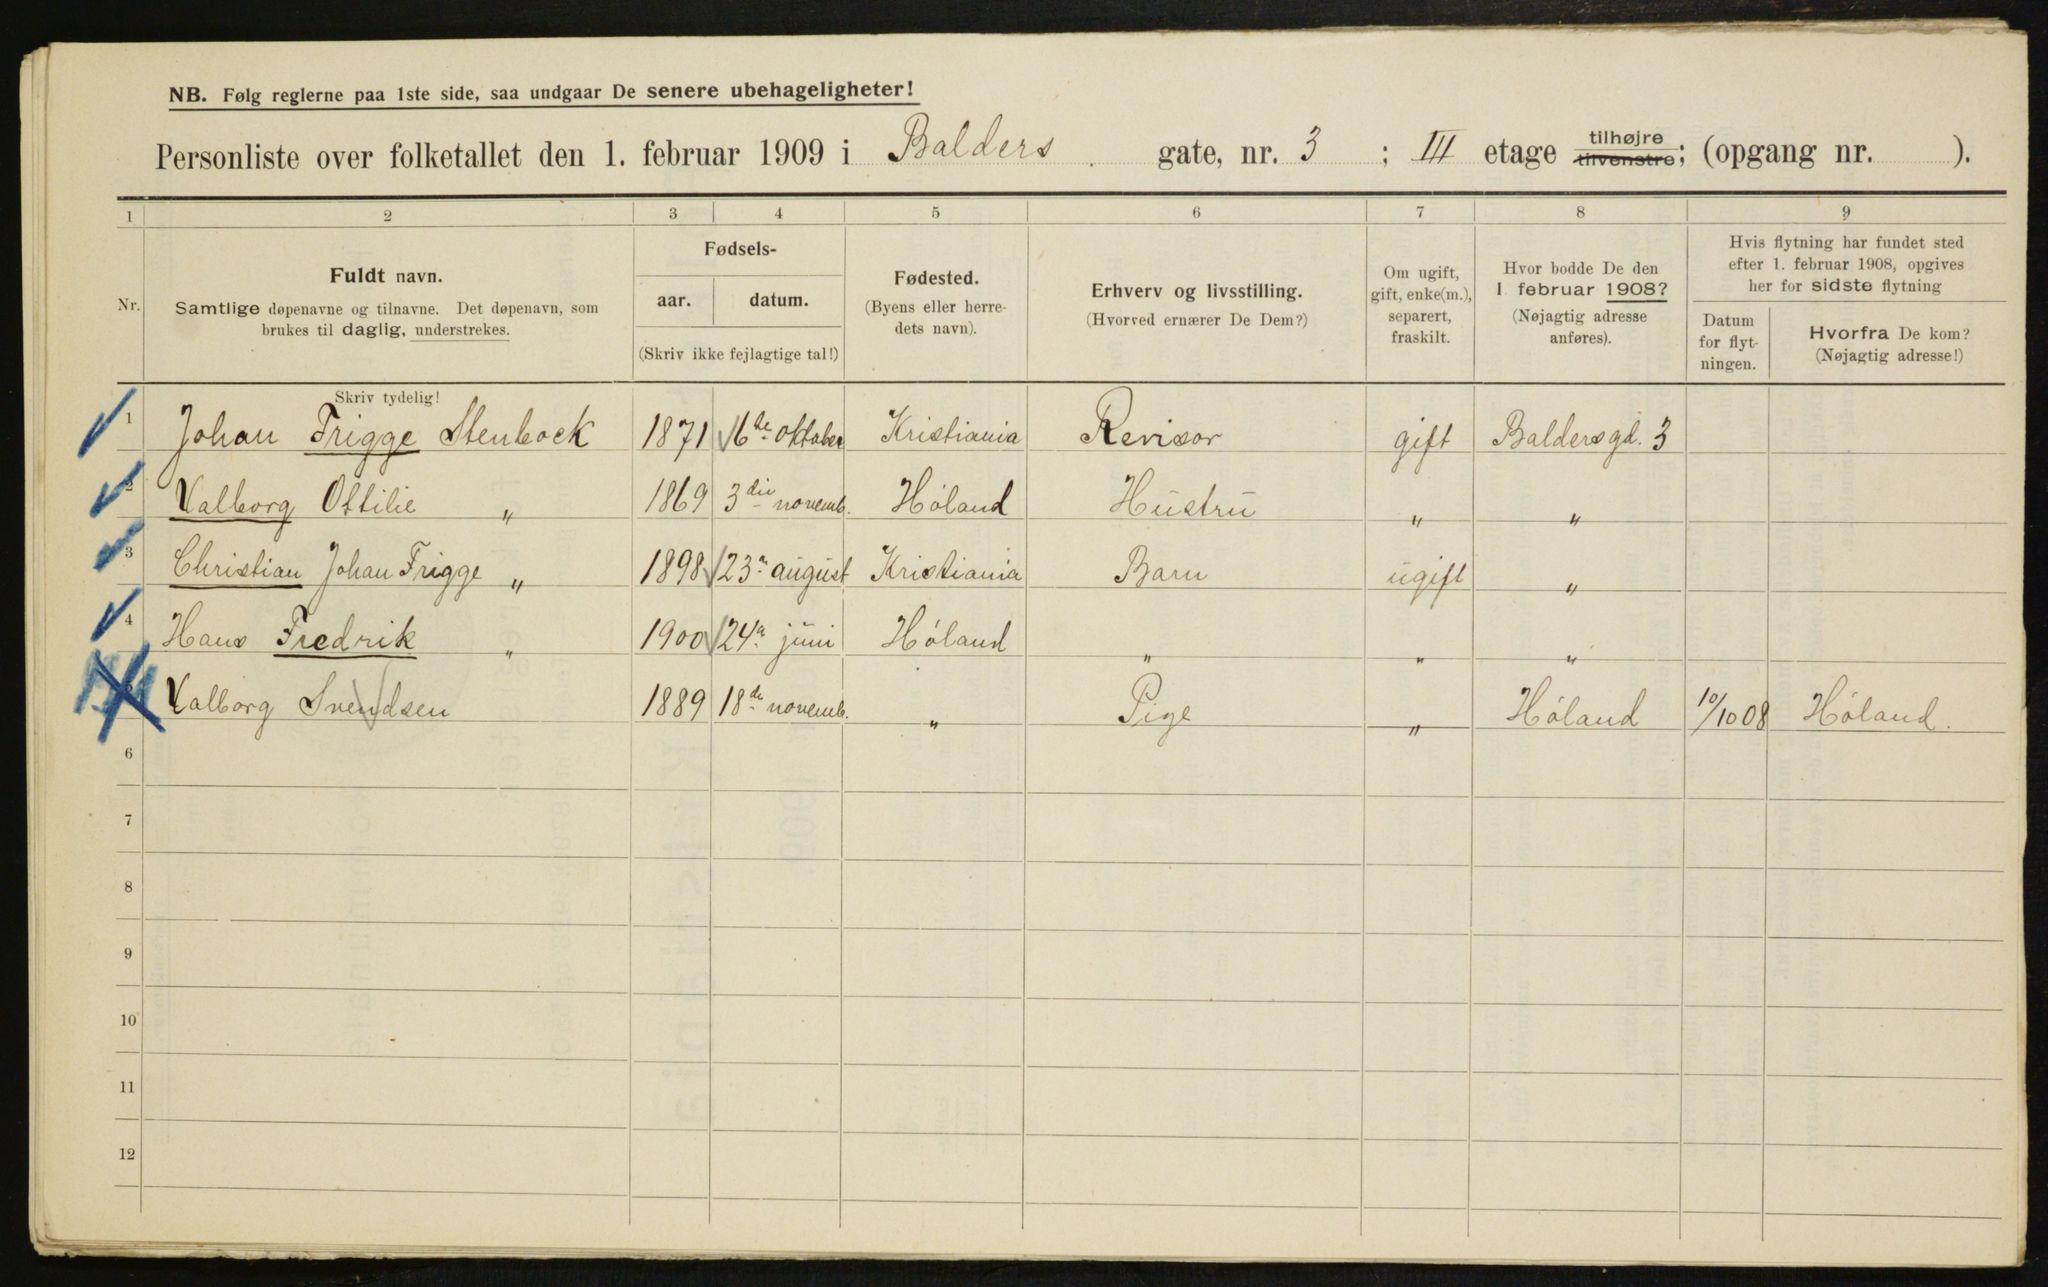 NB. Følg reglerne paa 1ste side, saa undgaar De senere ubehageligheter!
Personliste over folketallet den 1. februar 1909 i Balders gate, nr. 3 ; III etage tilhøjre tilvenstre; (opgang nr. ).
1 2 3 4 5 6 7 8 9
Nr.
Fuldt navn.
Samtlige døpenavne og tilnavne. Det døpenavn, som
brukes til daglig, understrekes.
Fødsels-
aar. datum.
(Skriv ikke fejlagtige tal!)
Fødested.
(Byens eller herre-
dets navn).
Erhverv og livsstilling.
(Hvorved ernærer De Dem?)
Om ugift,
gift, enke(m.),
separert,
fraskilt.
Hvor bodde De den
1. februar 1908?
(Nøjagtig adresse
anføres).
Hvis flytning har fundet sted
efter 1. februar 1908, opgives
her for sidste flytning
Datum
for flyt-
ningen.
Hvorfra De kom?
(Nøjagtig adresse!)
Skriv tydelig!
1 Johan Frigge Stenbock 1871 6te oktober Kristiania Revisor gift Baldersgd. 3
2 Valborg Ottilie " 1869 3die novemb. Høland Hustru " "
3 Christian Johan Frigge " 1898 23n august Kristiania Barn ugift "
4 Hans Fredrik " 1900 24a juni Høland " " "
5 Valborg Svendsen 1889 18de novemb. " Pige " Høland 10/10 08 Høland.
6
7
8
9
10
11
12